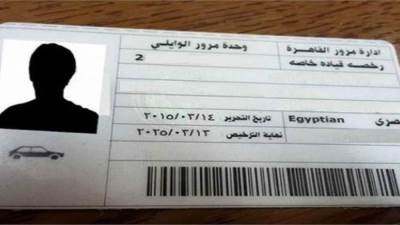 ادارة مرور القاهرة وحدة مرور الوايلي
رخصه قياده خاصه 2
مصرى Egyptian
تاريخ التحرير ٢٠١٥/٠٣/١٤
نهاية الترخيص ٢٠٢٥/٠٣/١٣